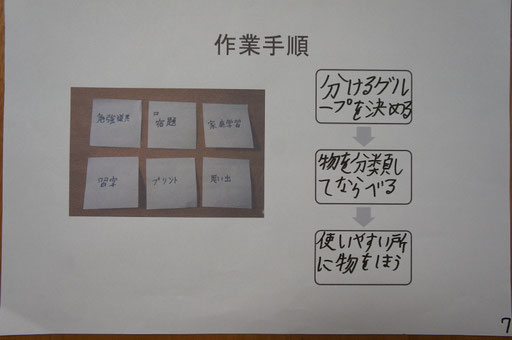 作業手順
勉強道具
宿題
家庭学習
習字
プリント
思い出
分けるグル
ープを決める
物を分類し
てならべる
使いやすい所
に物をしまう
7